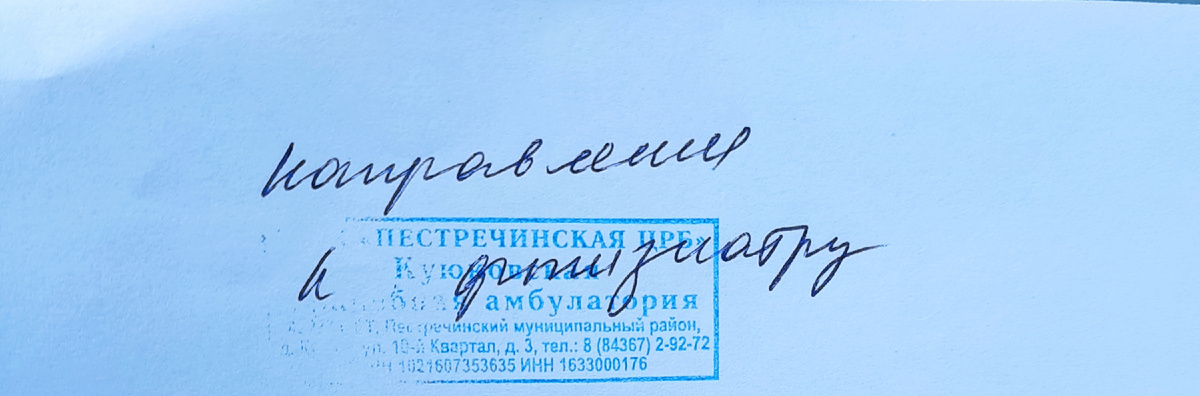 направление
«ПЕСТРЕЧИНСКАЯ ЦРБ»
к фтизиатру
Куюковская
амбулатория
Пестречинский муниципальный район,
ул. 10-й Квартал, д. 3, тел.: 8 (84367) 2-92-72
1021607353635 ИНН 1633000176